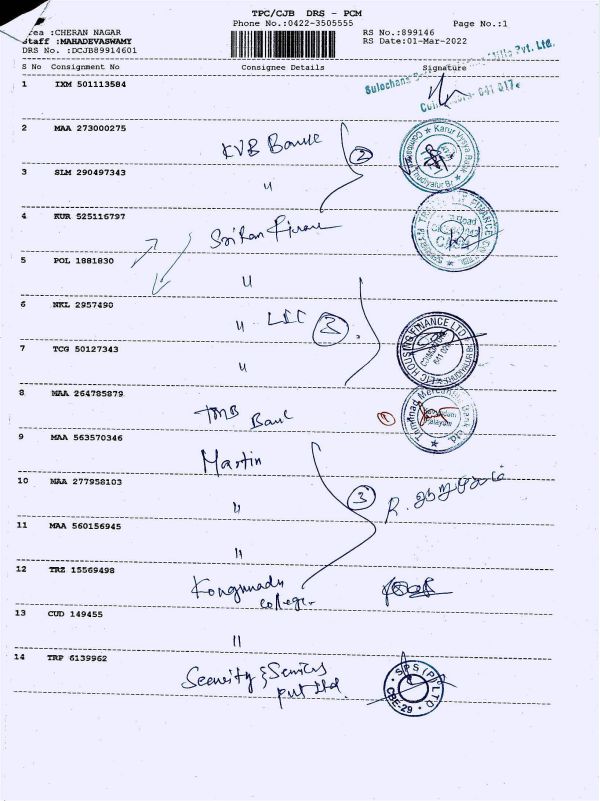 TPC/CJB DRS - PCM
Phone No.:0422-3505555 Page No.:1
Area :CHERAN NAGAR RS No.:899146
Staff :MAHADEVASWAMY RS DATE:01-Mar-2022
DRS No. :DCJB89914601
S No Consignment No Consignee Details Signature
Sulochana Mills Pvt. Ltd.
641 017
1 IXM 501113584
2 MAA 273000275
KVB Bank 2
Karur Vysya Bank
Thudiyalur Br.
3 SLM 290497343
"
4 KUR 525116797
Sri Ram Finance
5 POL 1881830
"
6 NKL 2957490
" LIC 3
LIC HOUSING FINANCE LTD
7 TCG 50127343
"
8 MAA 264785879
TMB Bank 1
Tamilnad Mercantile Bank Ltd.
9 MAA 563570346
Martin
10 MAA 277958103
" 3
11 MAA 560156945
"
12 TRZ 15569498
Kongunadu
college
13 CUD 149455
"
14 TRP 6139962
Security &
pvt ltd.
SPS (P) LTD
CBE-29